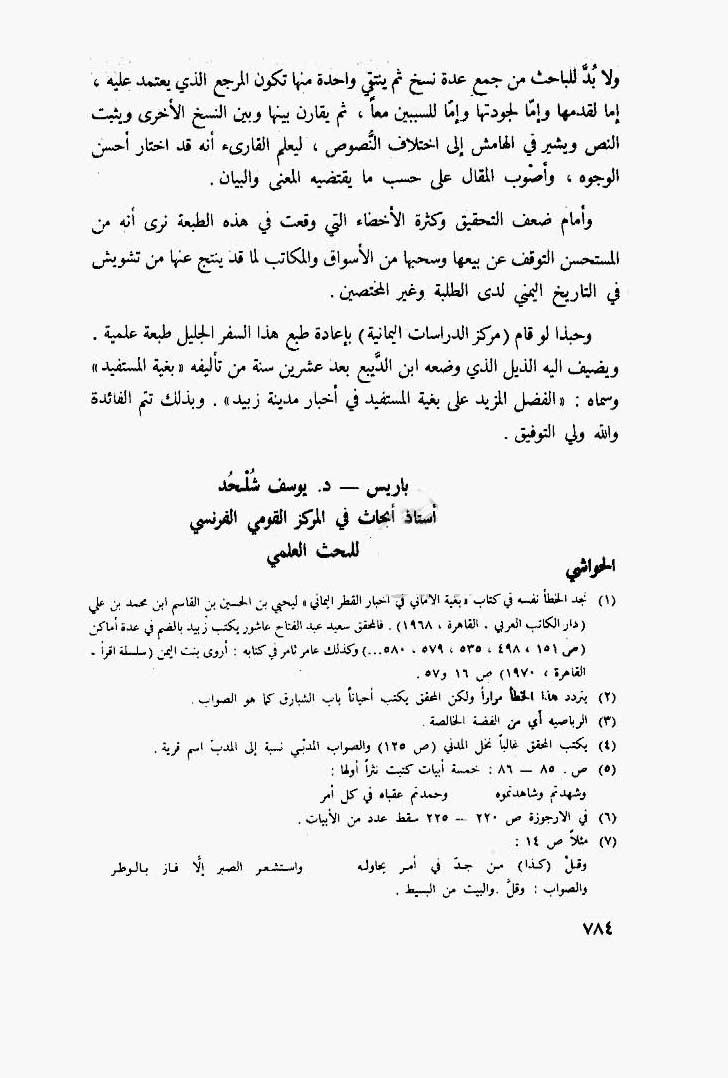 ولا بُدَّ للباحث من جمع عدة نسخ ثم ينتقي واحدة منها تكون المرجع الذي يعتمد عليه ،
إما لقدمها وإمّا لجودتها وإمّا للسببين معاً ، ثم يقارن بينها وبين النسخ الأخرى ويثبت
النص ويشير في الهامش إلى اختلاف النُّصوص ، ليعلم القارىء أنه قد اختار أحسن
الوجوه ، وأصْوب المقال على حسب ما يقتضيه المعنى والبيان .
وأمام ضعف التحقيق وكثرة الأخطاء التي وقعت في هذه الطبعة نرى أنه من
المستحسن التوقف عن بيعها وسحبها من الأسواق والمكاتب لما قد ينتج عنها من تشويش
في التاريخ اليمني لدى الطلبة وغير المختصين .
وحبذا لو قام (مركز الدراسات اليمانية) بإعادة طبع هذا السفر الجليل طبعة علمية .
ويضيف اليه الذيل الذي وضعه ابن الدَّيبع بعد عشرين سنة من تأليفه «بغية المستفيد»
وسماه : «الفضل المزيد على بغية المستفيد في أخبار مدينة زبيد» . وبذلك تتم الفائدة
والله ولي التوفيق .
باريس — د. يوسف شُلْحُد
أستاذ أبحاث في المركز القومي الفرنسي
للبحث العلمي
الحواشي
(١) نجد الخطأ نفسه في كتاب «بغية الاماني في اخبار القطر اليماني» ليحيى بن الحسين بن القاسم ابن محمد بن علي
(دار الكاتب العربي . القاهرة ، ١٩٦٨) . فالمحقق سعيد عبد الفتاح عاشور يكتب زُبيد بالضم في عدة أماكن
(ص ١٥١ ، ٤٩٨ ، ٥٣٥ ، ٥٧٩ . ٥٨٠...) وكذلك عامر ثامر في كتابه : أروى بنت اليمن (سلسلة اقرأ -
القاهرة ، ١٩٧٠) ص ١٦ و٥٧ .
(٢) يتردد هذا الخطأ مراراً ولكن المحقق يكتب أحياناً باب الشبارق كما هو الصواب .
(٣) الرباصيه أي من الفضة الخالصة .
(٤) يكتب المحقق غالباً نخل المدني (ص ١٢٥) والصواب المدبّي نسبة إلى المدبّ اسم قرية .
(٥) ص . ٨٥ — ٨٦ : خمسة أبيات كتبت نثراً أولها :
وشهدتم وشاهدتموه وحمدتم عقباه في كل أمر
(٦) في الارجوزة ص ٢٢٠ — ٢٢٥ سقط عدد من الأبيات .
(٧) مثلاً ص ١٤ :
وقلْ (كذا) من جدّ في أمر يحاوله واستشعر الصبر إلّا فاز بالوطر
والصواب : وقلَّ .والبيت من البسيط .
٧٨٤